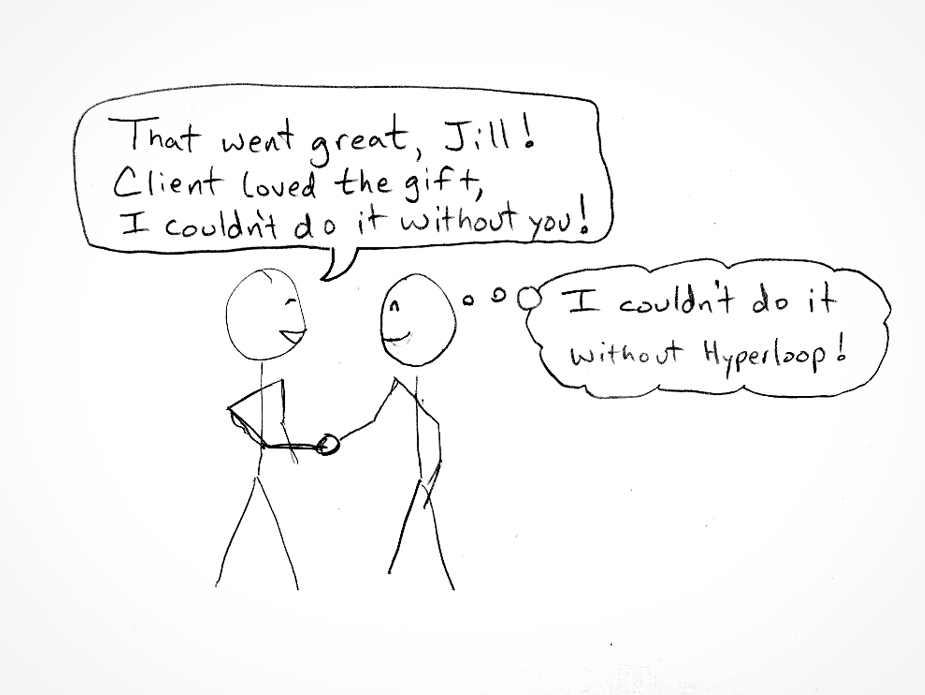 That went great, Jill!
Client loved the gift,
I couldn't do it without you!
I couldn't do it
without Hyperloop!